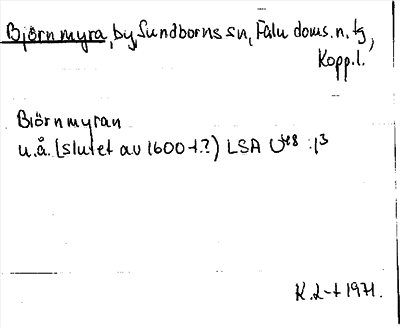 Björnmyra, by, Sundborns sn, Falu doms.n. tg,
Kopp.l.
Biörnmyran
u.å. (slutet av 1600-t.?) LSA U48:1³
K.L-t 1971.